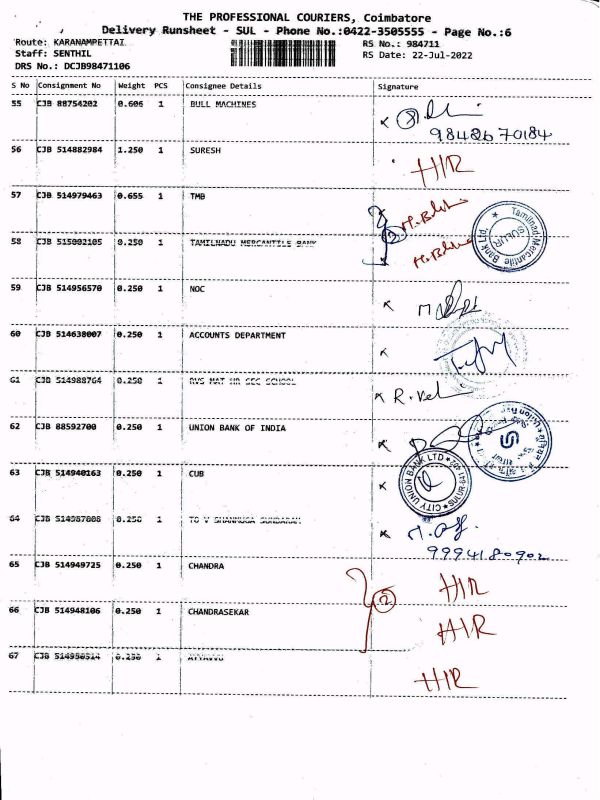 THE PROFESSIONAL COURIERS, Coimbatore
Delivery Runsheet - SUL - Phone No.:0422-3505555 - Page No.:6
Route: KARANAMPETTAI
RS No.: 984711
Staff: SENTHIL
RS Date: 22-Jul-2022
DRS No.: DCJB98471106
S No Consignment No Weight PCS Consignee Details Signature
55 CJB 88754202 0.606 1 BULL MACHINES
9842670184
56 CJB 514882984 1.250 1 SURESH HIR
57 CJB 514979463 0.655 1 TMB
Tamilnad Mercantile Bank Ltd.
SULUR
58 CJB 515002105 0.250 1 TAMILNADU MERCANTILE BANK
2
59 CJB 514956570 0.250 1 NOC
60 CJB 514638007 0.250 1 ACCOUNTS DEPARTMENT
61 CJB 514988764 0.250 1 RVS MAT HR SEC SCHOOL R. Vel
62 CJB 88592700 0.250 1 UNION BANK OF INDIA
63 CJB 514940163 0.250 1 CUB
CITY UNION BANK LTD
64 CJB 514987808 0.250 1 TO V SHANMUGA SUNDARAM
9994180902
65 CJB 514949725 0.250 1 CHANDRA HIR
2
66 CJB 514948106 0.250 1 CHANDRASEKAR HIR
67 CJB 514950514 0.250 1 AYYAVVU HIR